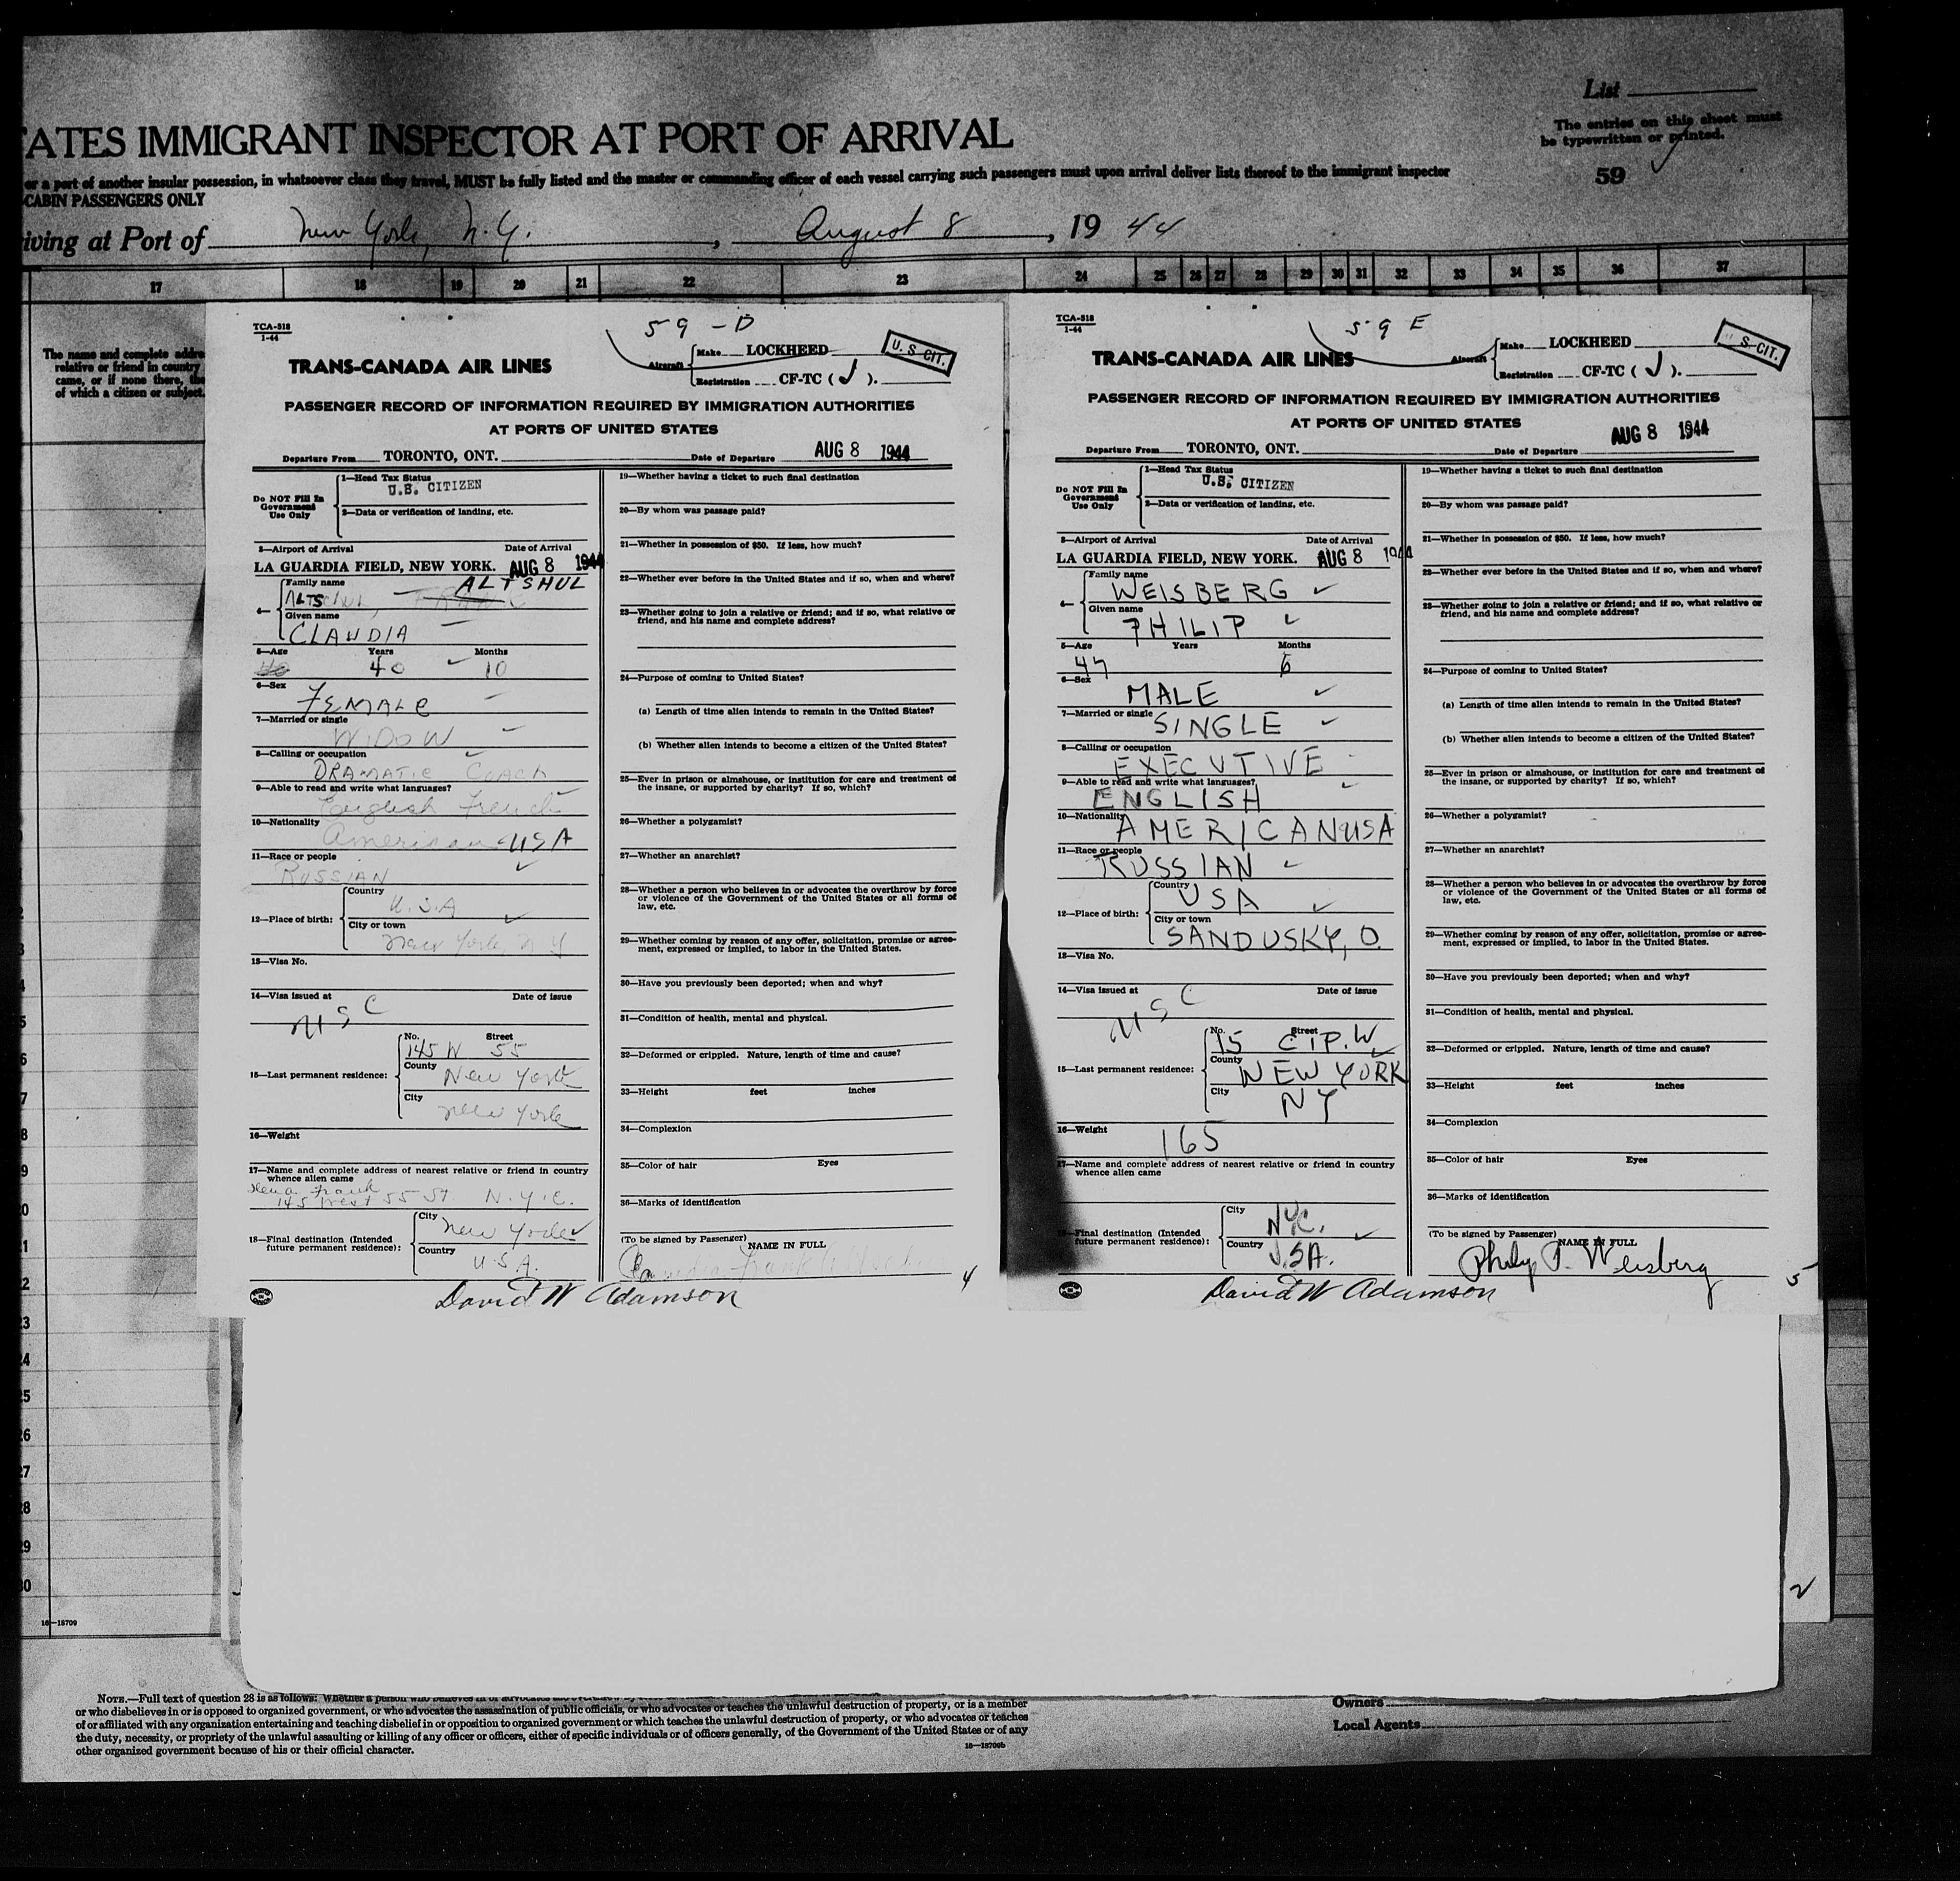 List
The entries on this sheet must
be typewritten or printed.
59
TATES IMMIGRANT INSPECTOR AT PORT OF ARRIVAL
or a part of another insular possession, in whatsoever class they travel, MUST be fully listed and the master or commanding officer of each vessel carrying such passengers must upon arrival deliver lists thereof to the immigrant inspector
CABIN PASSENGERS ONLY
iving at Port of New York, N.Y., August 8, 1944
17 18 19 20 21 22 23 24 25 26 27 28 29 30 31 32 33 34 35 36 37
The name and complete addre
relative or friend in country
came, or if none there, the
of which a citizen or subject.
TCA-518
1-44
59-D
U.S. CIT.
TRANS-CANADA AIR LINES
Aircraft
Make LOCKHEED
Registration CF-TC (J).
PASSENGER RECORD OF INFORMATION REQUIRED BY IMMIGRATION AUTHORITIES
AT PORTS OF UNITED STATES
Departure From TORONTO, ONT. Date of Departure AUG 8 1944
Do NOT Fill In
Government
Use Only
1—Head Tax Status
U.S. CITIZEN
2—Data or verification of landing, etc.
3—Airport of Arrival Date of Arrival
LA GUARDIA FIELD, NEW YORK. AUG 8 1944
4—
Family name
ALTSHUL
Given name
CLAUDIA
5—Age Years Months
40 40 10
6—Sex
FEMALE
7—Married or single
WIDOW
8—Calling or occupation
DRAMATIC COACH
9—Able to read and write what languages?
English French
10—Nationality
American USA
11—Race or people
RUSSIAN
12—Place of birth:
Country
U.S.A
City or town
New York, N Y
13—Visa No.
14—Visa issued at Date of issue
USC
15—Last permanent residence:
No. Street
145 W 55
County
New York
City
New York
16—Weight
17—Name and complete address of nearest relative or friend in country
whence alien came
Frank
145 West 55 St. N.Y.C.
18—Final destination (Intended
future permanent residence):
City
New York
Country
U.S.A.
19—Whether having a ticket to such final destination
20—By whom was passage paid?
21—Whether in possession of $50. If less, how much?
22—Whether ever before in the United States and if so, when and where?
23—Whether going to join a relative or friend; and if so, what relative or
friend, and his name and complete address?
24—Purpose of coming to United States?
(a) Length of time alien intends to remain in the United States?
(b) Whether alien intends to become a citizen of the United States?
25—Ever in prison or almshouse, or institution for care and treatment of
the insane, or supported by charity? If so, which?
26—Whether a polygamist?
27—Whether an anarchist?
28—Whether a person who believes in or advocates the overthrow by force
or violence of the Government of the United States or all forms of
law, etc.
29—Whether coming by reason of any offer, solicitation, promise or agree-
ment, expressed or implied, to labor in the United States.
30—Have you previously been deported; when and why?
31—Condition of health, mental and physical.
32—Deformed or crippled. Nature, length of time and cause?
33—Height feet inches
34—Complexion
35—Color of hair Eyes
36—Marks of identification
(To be signed by Passenger)
NAME IN FULL
David W Adamson
4
TCA-518
1-44
59 E
S-CIT.
TRANS-CANADA AIR LINES
Aircraft
Make LOCKHEED
Registration CF-TC (J).
PASSENGER RECORD OF INFORMATION REQUIRED BY IMMIGRATION AUTHORITIES
AT PORTS OF UNITED STATES
AUG 8 1944
Departure From TORONTO, ONT. Date of Departure
Do NOT Fill In
Government
Use Only
1—Head Tax Status
U.S. CITIZEN
2—Data or verification of landing, etc.
3—Airport of Arrival Date of Arrival
LA GUARDIA FIELD, NEW YORK. AUG 8 1944
4—
Family name
WEISBERG
Given name
PHILIP
5—Age Years Months
47 6
6—Sex
MALE
7—Married or single
SINGLE
8—Calling or occupation
EXECUTIVE
9—Able to read and write what languages?
ENGLISH
10—Nationality
AMERICAN USA
11—Race or people
RUSSIAN
12—Place of birth:
Country
USA
City or town
SANDUSKY, O.
13—Visa No.
14—Visa issued at Date of issue
USC
15—Last permanent residence:
No. Street
15 C.P.W.
County
NEW YORK
City
NY
16—Weight
165
17—Name and complete address of nearest relative or friend in country
whence alien came
18—Final destination (Intended
future permanent residence):
City
NYC.
Country
U.S.A.
19—Whether having a ticket to such final destination
20—By whom was passage paid?
21—Whether in possession of $50. If less, how much?
22—Whether ever before in the United States and if so, when and where?
23—Whether going to join a relative or friend; and if so, what relative or
friend, and his name and complete address?
24—Purpose of coming to United States?
(a) Length of time alien intends to remain in the United States?
(b) Whether alien intends to become a citizen of the United States?
25—Ever in prison or almshouse, or institution for care and treatment of
the insane, or supported by charity? If so, which?
26—Whether a polygamist?
27—Whether an anarchist?
28—Whether a person who believes in or advocates the overthrow by force
or violence of the Government of the United States or all forms of
law, etc.
29—Whether coming by reason of any offer, solicitation, promise or agree-
ment, expressed or implied, to labor in the United States.
30—Have you previously been deported; when and why?
31—Condition of health, mental and physical.
32—Deformed or crippled. Nature, length of time and cause?
33—Height feet inches
34—Complexion
35—Color of hair Eyes
36—Marks of identification
(To be signed by Passenger)
NAME IN FULL
Philip P. Weisberg
David W Adamson
5
2
16—18709
NOTE.—Full text of question 28 is as follows: Whether a person who believes in or advocates the overthrow by
or who disbelieves in or is opposed to organized government, or who advocates the assassination of public officials, or who advocates or teaches the unlawful destruction of property, or is a member
of or affiliated with any organization entertaining and teaching disbelief in or opposition to organized government or which teaches the unlawful destruction of property, or who advocates or teaches
the duty, necessity, or propriety of the unlawful assaulting or killing of any officer or officers, either of specific individuals or of officers generally, of the Government of the United States or of any
other organized government because of his or their official character.
16—18709b
Owners
Local Agents